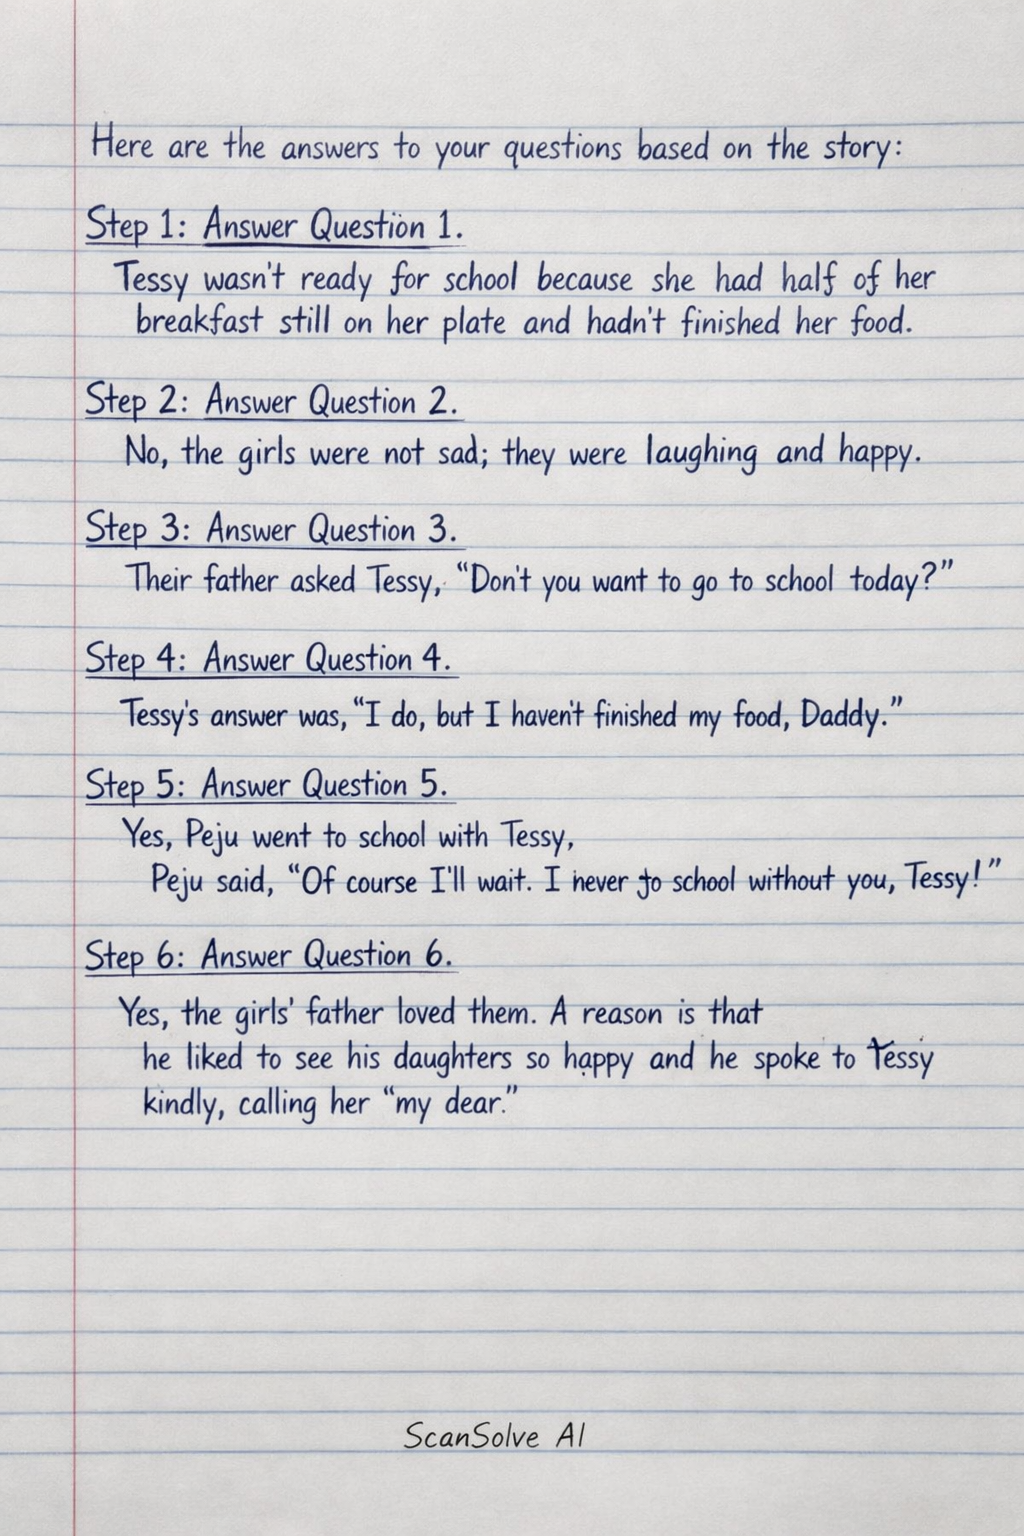 Here are the answers to your questions based on the story:
Step 1: Answer Question 1.
Tessy wasn't ready for school because she had half of her
breakfast still on her plate and hadn't finished her food.
Step 2: Answer Question 2.
No, the girls were not sad; they were laughing and happy.
Step 3: Answer Question 3.
Their father asked Tessy, "Don't you want to go to school today?"
Step 4: Answer Question 4.
Tessy's answer was, "I do, but I haven't finished my food, Daddy."
Step 5: Answer Question 5.
Yes, Peju went to school with Tessy,
Peju said, "Of course I'll wait. I never to school without you, Tessy!"
Step 6: Answer Question 6.
Yes, the girls' father loved them. A reason is that
he liked to see his daughters so happy and he spoke to Tessy
kindly, calling her "my dear."
ScanSolve AI